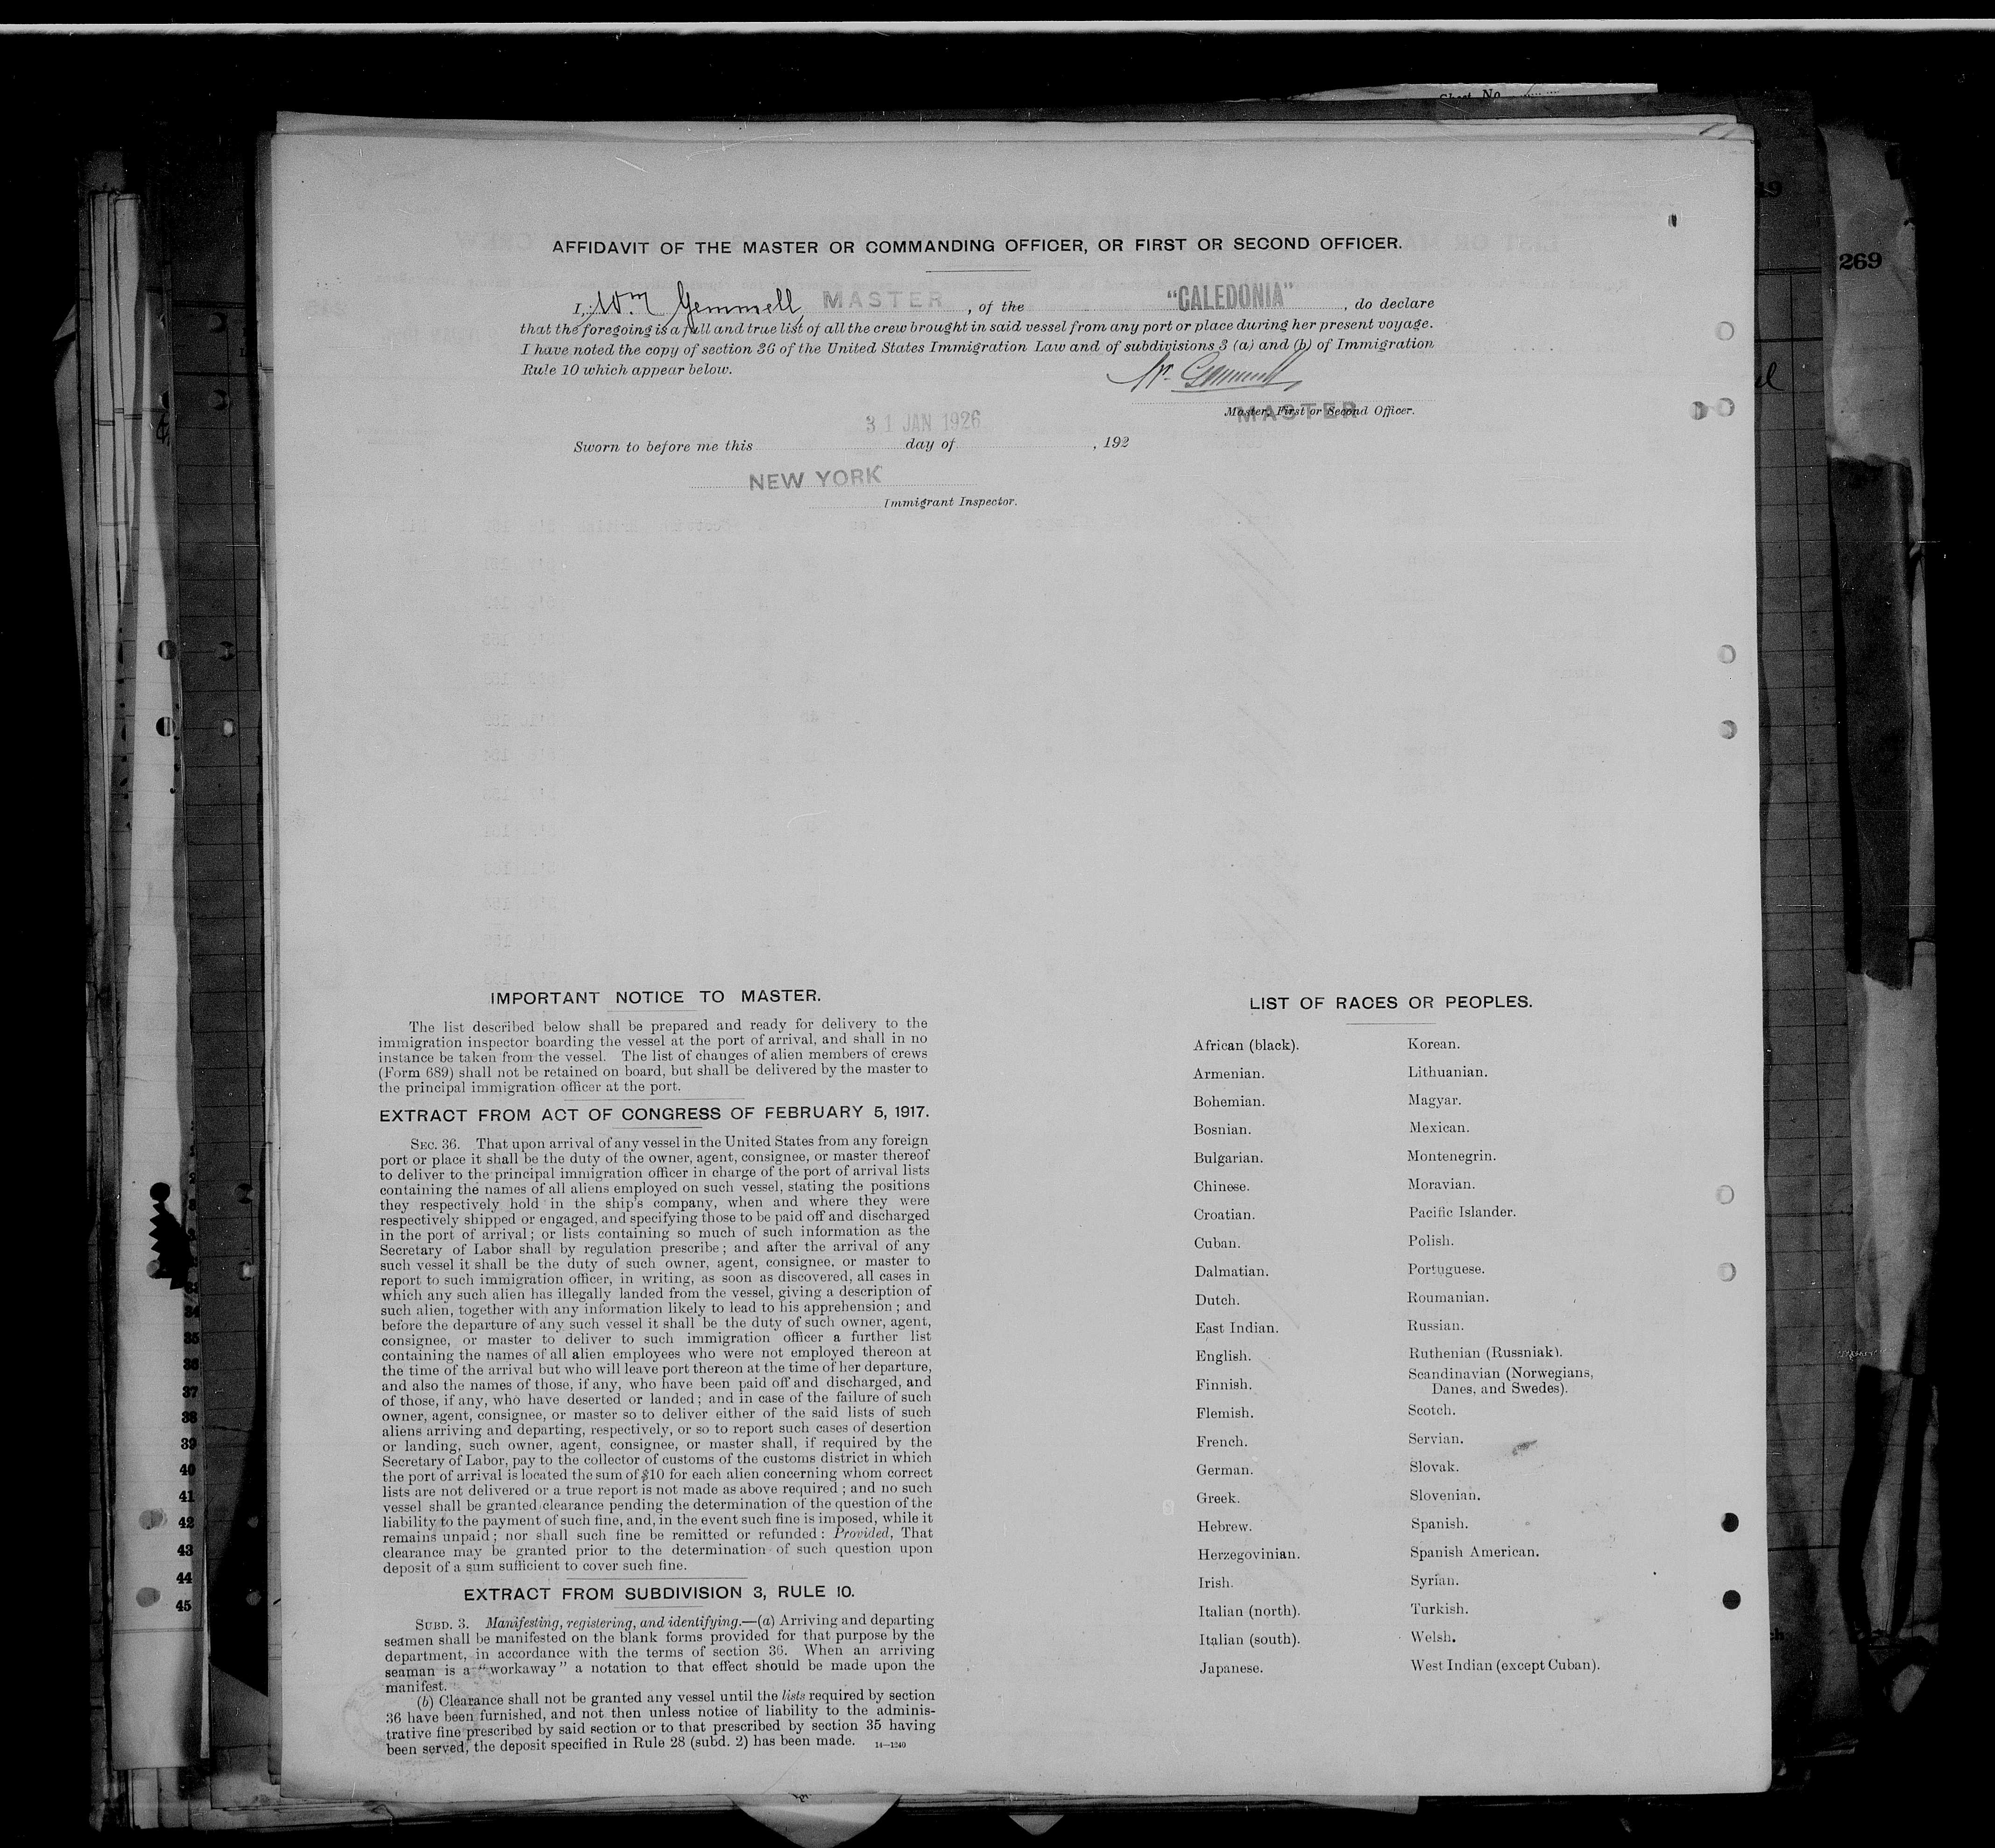 Sheet No.
269
AFFIDAVIT OF THE MASTER OR COMMANDING OFFICER, OR FIRST OR SECOND OFFICER.
I, Wm Gemmell, MASTER, of the "CALEDONIA", do declare
that the foregoing is a full and true list of all the crew brought in said vessel from any port or place during her present voyage.
I have noted the copy of section 36 of the United States Immigration Law and of subdivisions 3 (a) and (b) of Immigration
Rule 10 which appear below.
W. Gemmell
Master, First or Second Officer.
MASTER
31 JAN 1926
Sworn to before me this day of , 192
NEW YORK
Immigrant Inspector.
IMPORTANT NOTICE TO MASTER.
The list described below shall be prepared and ready for delivery to the
immigration inspector boarding the vessel at the port of arrival, and shall in no
instance be taken from the vessel. The list of changes of alien members of crews
(Form 689) shall not be retained on board, but shall be delivered by the master to
the principal immigration officer at the port.
EXTRACT FROM ACT OF CONGRESS OF FEBRUARY 5, 1917.
SEC. 36. That upon arrival of any vessel in the United States from any foreign
port or place it shall be the duty of the owner, agent, consignee, or master thereof
to deliver to the principal immigration officer in charge of the port of arrival lists
containing the names of all aliens employed on such vessel, stating the positions
they respectively hold in the ship's company, when and where they were
respectively shipped or engaged, and specifying those to be paid off and discharged
in the port of arrival; or lists containing so much of such information as the
Secretary of Labor shall by regulation prescribe; and after the arrival of any
such vessel it shall be the duty of such owner, agent, consignee, or master to
report to such immigration officer, in writing, as soon as discovered, all cases in
which any such alien has illegally landed from the vessel, giving a description of
such alien, together with any information likely to lead to his apprehension; and
before the departure of any such vessel it shall be the duty of such owner, agent,
consignee, or master to deliver to such immigration officer a further list
containing the names of all alien employees who were not employed thereon at
the time of the arrival but who will leave port thereon at the time of her departure,
and also the names of those, if any, who have been paid off and discharged, and
of those, if any, who have deserted or landed; and in case of the failure of such
owner, agent, consignee, or master so to deliver either of the said lists of such
aliens arriving and departing, respectively, or so to report such cases of desertion
or landing, such owner, agent, consignee, or master shall, if required by the
Secretary of Labor, pay to the collector of customs of the customs district in which
the port of arrival is located the sum of $10 for each alien concerning whom correct
lists are not delivered or a true report is not made as above required; and no such
vessel shall be granted clearance pending the determination of the question of the
liability to the payment of such fine, and, in the event such fine is imposed, while it
remains unpaid; nor shall such fine be remitted or refunded: Provided, That
clearance may be granted prior to the determination of such question upon
deposit of a sum sufficient to cover such fine.
EXTRACT FROM SUBDIVISION 3, RULE 10.
SUBD. 3. Manifesting, registering, and identifying.—(a) Arriving and departing
seamen shall be manifested on the blank forms provided for that purpose by the
department, in accordance with the terms of section 36. When an arriving
seaman is a "workaway" a notation to that effect should be made upon the
manifest.
(b) Clearance shall not be granted any vessel until the lists required by section
36 have been furnished, and not then unless notice of liability to the adminis-
trative fine prescribed by said section or to that prescribed by section 35 having
been served, the deposit specified in Rule 28 (subd. 2) has been made. 14—1240
LIST OF RACES OR PEOPLES.
African (black).
Armenian.
Bohemian.
Bosnian.
Bulgarian.
Chinese.
Croatian.
Cuban.
Dalmatian.
Dutch.
East Indian.
English.
Finnish.
Flemish.
French.
German.
Greek.
Hebrew.
Herzegovinian.
Irish.
Italian (north).
Italian (south).
Japanese.
Korean.
Lithuanian.
Magyar.
Mexican.
Montenegrin.
Moravian.
Pacific Islander.
Polish.
Portuguese.
Roumanian.
Russian.
Ruthenian (Russniak).
Scandinavian (Norwegians,
Danes, and Swedes).
Scotch.
Servian.
Slovak.
Slovenian.
Spanish.
Spanish American.
Syrian.
Turkish.
Welsh.
West Indian (except Cuban).
34
35
36
37
38
39
40
41
42
43
44
45